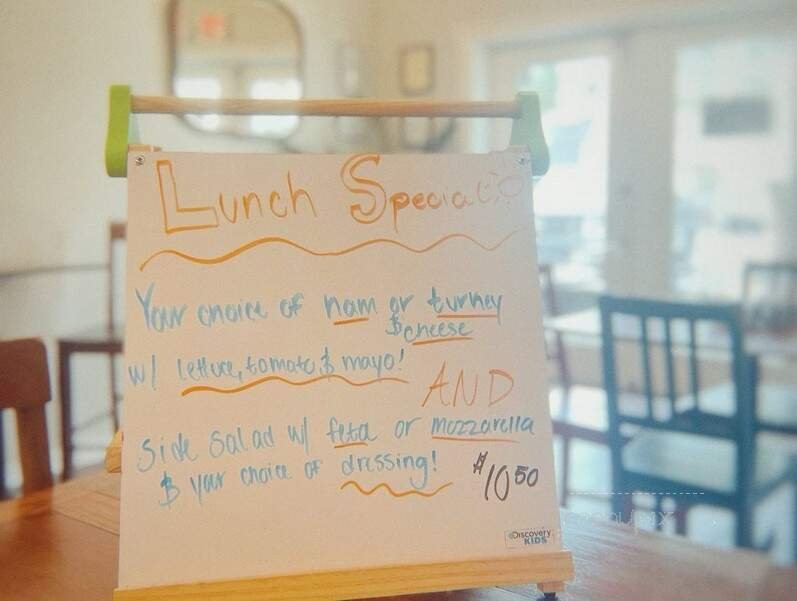 Lunch Special
Your choice of ham or turkey
& cheese
w/ lettuce, tomato & mayo!
AND
Side Salad w/ feta or mozzarella
& your choice of dressing!
$10 50
Discovery
KIDS